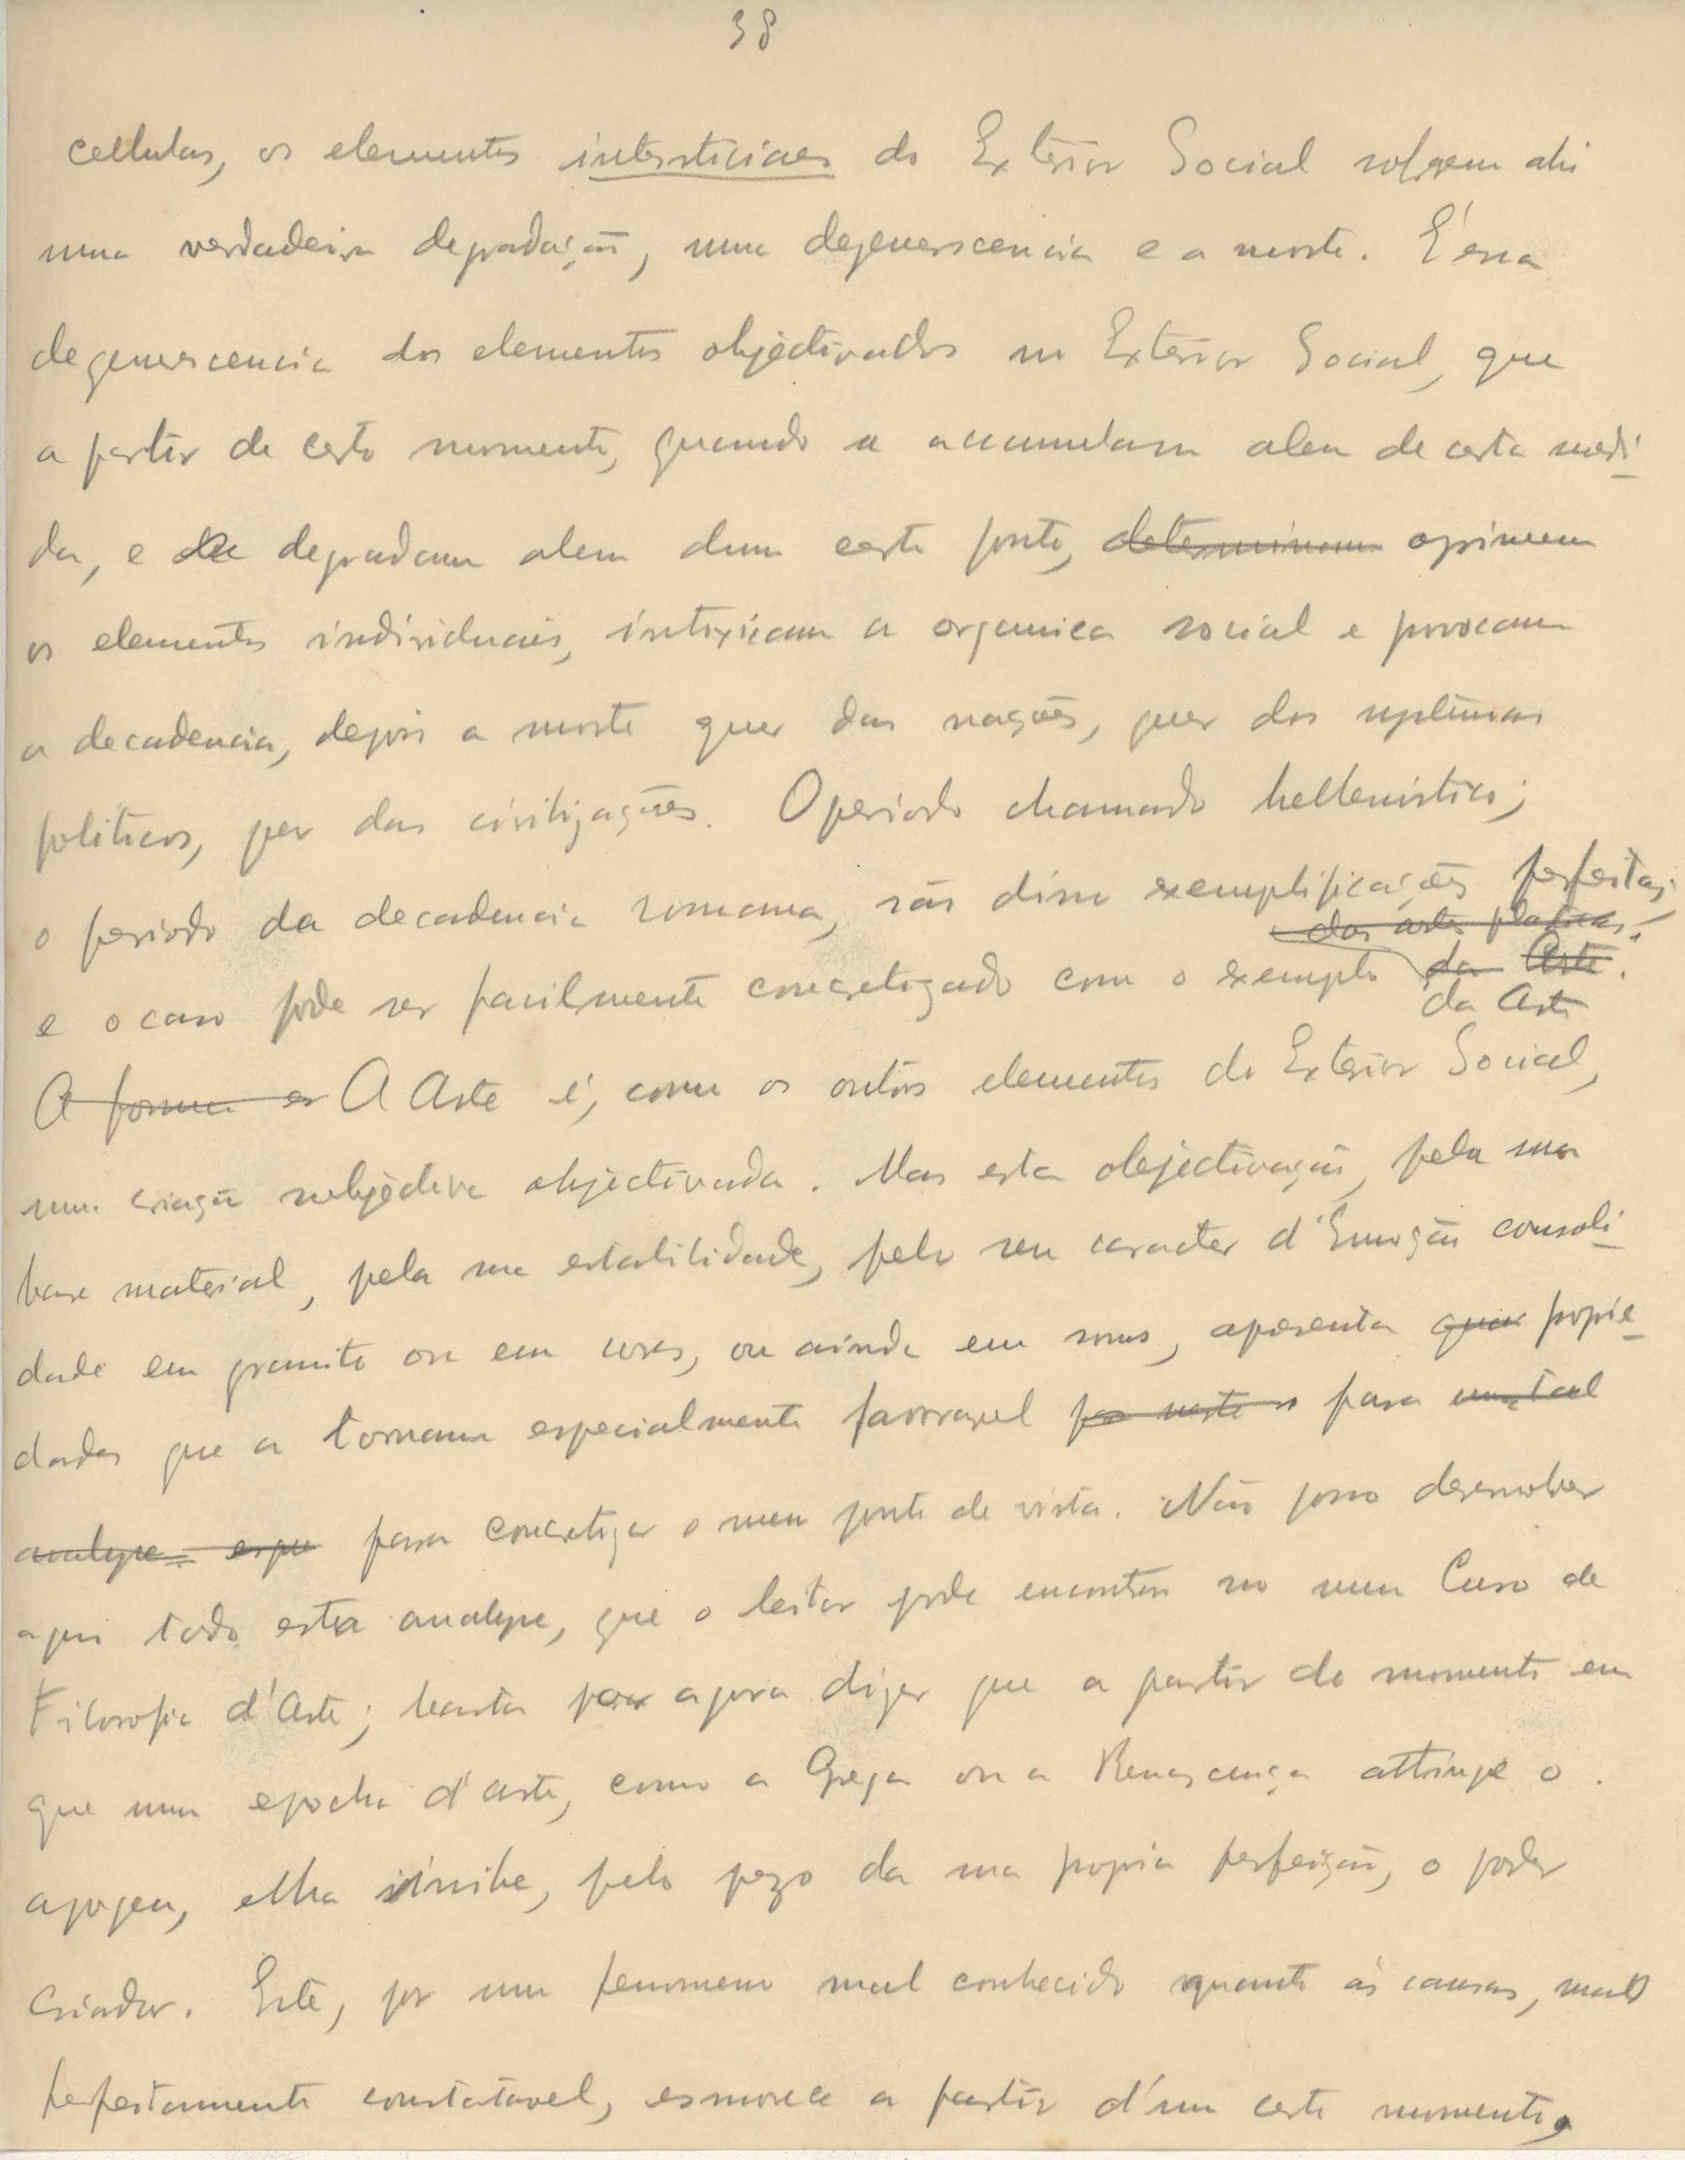 38
cellulas, os elementos intersticiaes do Exterior Social soffrem ahi
uma verdadeira degradação, uma degenerscencia e a morte. É essa
degenerscencia dos elementos objectivados no Exterior Social, que
a partir de certo momento, quando se accumulam alem de certa medi-
da, e se degradam alem dum certo ponto, determinam oprimem
os elementos individuais, intoxicam a organica social e provocam
a decadencia, depois a morte quer das nações, quer dos systemas
politicos, quer das civilizações. O periodo chamado hellenistico;
o periodo da decadencia romana, são disso exemplificações perfeitas;
das artes plasticas.
e o caso pode ser facilmente concretizado com o exemplo da Arte.
da Arte
A forma es A Arte é, como os outros elementos do Exterior Social,
uma criação subjectiva objectivada. Mas esta objectivação, pela sua
base material, pela sua estabilidade, pelo seu caracter d'Emoção consoli-
dade em granito ou em cores, ou ainda em sons, apresenta quasi proprie-
dades que a tornam especialmente favoravel por neste o para uma tal
analyse espe para concretizar o meu ponto de vista. Não posso desenvolver
aqui toda esta analyse, que o leitor pode encontrar no meu Curso de
Filosofia d'Arte; basta por agora dizer que a partir do momento em
que uma epocha d'arte, como a Grega ou a Renascença attinge o
apogeu, ella inibe, pelo pezo da sua propria perfeição, o poder
criador. Este, por um fenomeno mal conhecido quanto ás causas, mas
perfeitamente constatavel, esmorece a partir d'um certo momento,